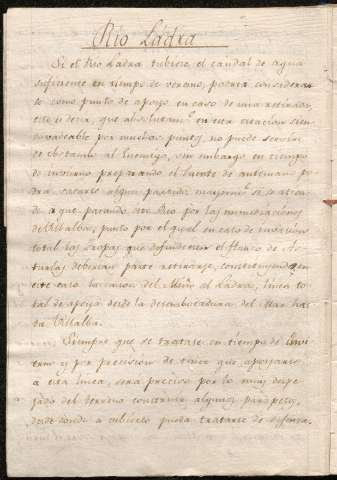 Rio Ladra
Si el Rio Ladra tubiese el caudal de agua
suficiente en tiempo de verano, podria considerar
lo como punto de apoyo en caso de una retirada,
esto es decir, que absolutam.te en esta estacion sien
do vadeable por muchos puntos, no puede servir
de obstaculo al Enemigo, sin embargo en tiempo
de invierno preparando el Puente de antemano po
dra sacarse algun partido mayorm.te si se atien
de a que pasando este Rio por las inmediaciones
de Villalba, punto por el qual en caso de invasion
total las tropas que defendiesen el flanco de As
turias deberian pasar retirarse, constituyendo en
este caso la union del Miño al Ladra, linea to
tal de apoyo desde la desembocadura del Mar has
ta Villalba.
Siempre que se tratase en tiempo de Invi
erno y por precision de tener que apoyarse
a esta linea, sera preciso por lo muy despe
jado del terreno construir algunos parapetos,
desde donde a cubierto pueda tratarse de defensa.